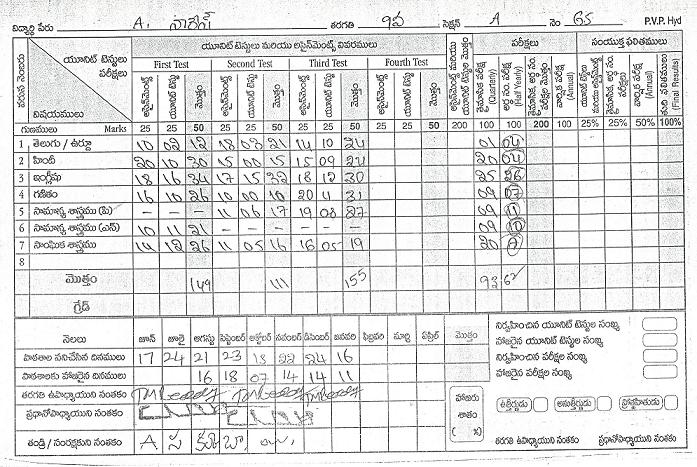 విద్యార్థి పేరు A. నాగేశ్ తరగతి 9వ సెక్షన్ A నెం 65 P.V.P. Hyd
వరుస నెంబరు యూనిట్ టెస్టులు పరీక్షలు విషయములు యూనిట్ టెస్టులు మరియు అసైన్‌మెంట్స్ వివరములు పరీక్షలు సంయుక్త ఫలితములు
First Test Second Test Third Test Fourth Test
అసైన్‌మెంట్స్ యూనిట్ టెస్టు మొత్తం అసైన్‌మెంట్స్ యూనిట్ టెస్టు మొత్తం అసైన్‌మెంట్స్ యూనిట్ టెస్టు మొత్తం అసైన్‌మెంట్స్ యూనిట్ టెస్టు మొత్తం
(Quarterly) (Half Yearly) (Annual) (Annual) (Final Results)
గుణములు Marks 25 25 50 25 25 50 25 25 50 25 25 50 200 100 100 200 100 25% 25% 50% 100%
1 తెలుగు / ఉర్దూ 10 02 12 18 03 21 14 10 24 01 04
2 హిందీ 20 10 30 15 00 15 15 09 24 20 04
3 ఇంగ్లీషు 18 16 34 17 15 32 18 12 30 25 26
4 గణితం 16 10 26 10 00 10 20 11 31 09 07
5 సామాన్య శాస్త్రము (పి) - - - 11 06 17 19 08 27 09 11
6 సామాన్య శాస్త్రము (ఎన్) 10 11 21 09 10
7 సాంఘిక శాస్త్రము 14 12 26 11 05 16 16 05 19 20
8
మొత్తం 149 111 155 93 62
గ్రేడ్
నెలలు జూన్ జూలై ఆగస్టు సెప్టెంబర్ అక్టోబర్ నవంబర్ డిసెంబర్ జనవరి ఫిబ్రవరి మార్చి ఏప్రిల్ మొత్తం
పాఠశాల పనిచేసిన దినములు 17 24 21 23 18 22 24 16
పాఠశాలకు హాజరైన దినములు 16 18 07 14 14 11
తరగతి ఉపాధ్యాయుని సంతకం
ప్రధానోపాధ్యాయుని సంతకం
తండ్రి / సంరక్షకుని సంతకం A
హాజరు శాతం ( %)
నిర్వహించిన యూనిట్ టెస్టుల సంఖ్య
హాజరైన యూనిట్ టెస్టుల సంఖ్య
నిర్వహించిన పరీక్షల సంఖ్య
హాజరైన పరీక్షల సంఖ్య
ఉత్తీర్ణుడు అనుత్తీర్ణుడు
తరగతి ఉపాధ్యాయుని సంతకం ప్రధానోపాధ్యాయుని సంతకం